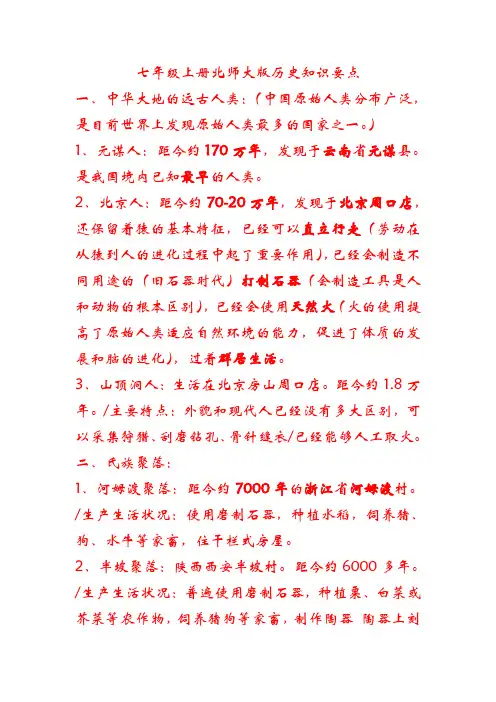 七年级上册北师大版历史知识要点
一、中华大地的远古人类:(中国原始人类分布广泛,
是目前世界上发现原始人类最多的国家之一。)
1、元谋人:距今约170万年,发现于云南省元谋县。
是我国境内已知最早的人类。
2、北京人:距今约70-20万年,发现于北京周口店,
还保留着猿的基本特征,已经可以直立行走(劳动在
从猿到人的进化过程中起了重要作用),已经会制造不
同用途的(旧石器时代)打制石器(会制造工具是人
和动物的根本区别),已经会使用天然火(火的使用提
高了原始人类适应自然环境的能力,促进了体质的发
展和脑的进化),过着群居生活。
3、山顶洞人:生活在北京房山周口店。距今约1.8万
年。/主要特点:外貌和现代人已经没有多大区别,可
以采集狩猎、刮磨钻孔、骨针缝衣/已经能够人工取火。
二、氏族聚落:
1、河姆渡聚落:距今约7000年的浙江省河姆渡村。
/生产生活状况:使用磨制石器,种植水稻,饲养猪、
狗、水牛等家畜,住干栏式房屋。
2、半坡聚落:陕西西安半坡村。距今约6000多年。
/生产生活状况:普遍使用磨制石器,种植粟、白菜或
芥菜等农作物,饲养猪狗等家畜,制作陶器 陶器上刻